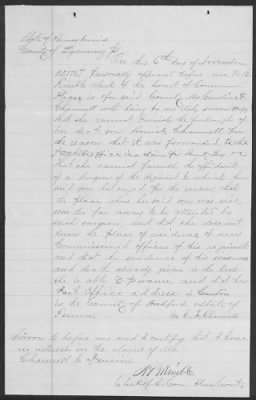 State of Pennsylvania
County of Lycoming
On this 6th day of November
personally appeared before me
Clerk of the Court of Common
Pleas in & for said County Mrs Caroline F
Channell who being by me duly sworn says
that she cannot furnish the furlough of
her dec'd son Channell for
the reason that it was forwarded to the
that she cannot furnish the affidavit
of a surgeon of the regiment to which her
said son belonged for the reason that
the place where her said son was sick
was too far away to be attended by
said surgeon and that she does not
know the place of residence of any
Commissioned officers of his regiment
and that the evidence of his sickness
and death already given is the best
she is able to procure and that her
Post Office address is Canton
in the County of Bradford & State of
Penna
C F Channell
Sworn to before me and I certify that I have
no interest in the claim of Mrs
Channell to a Pension
Clerk of Com. Pleas Court